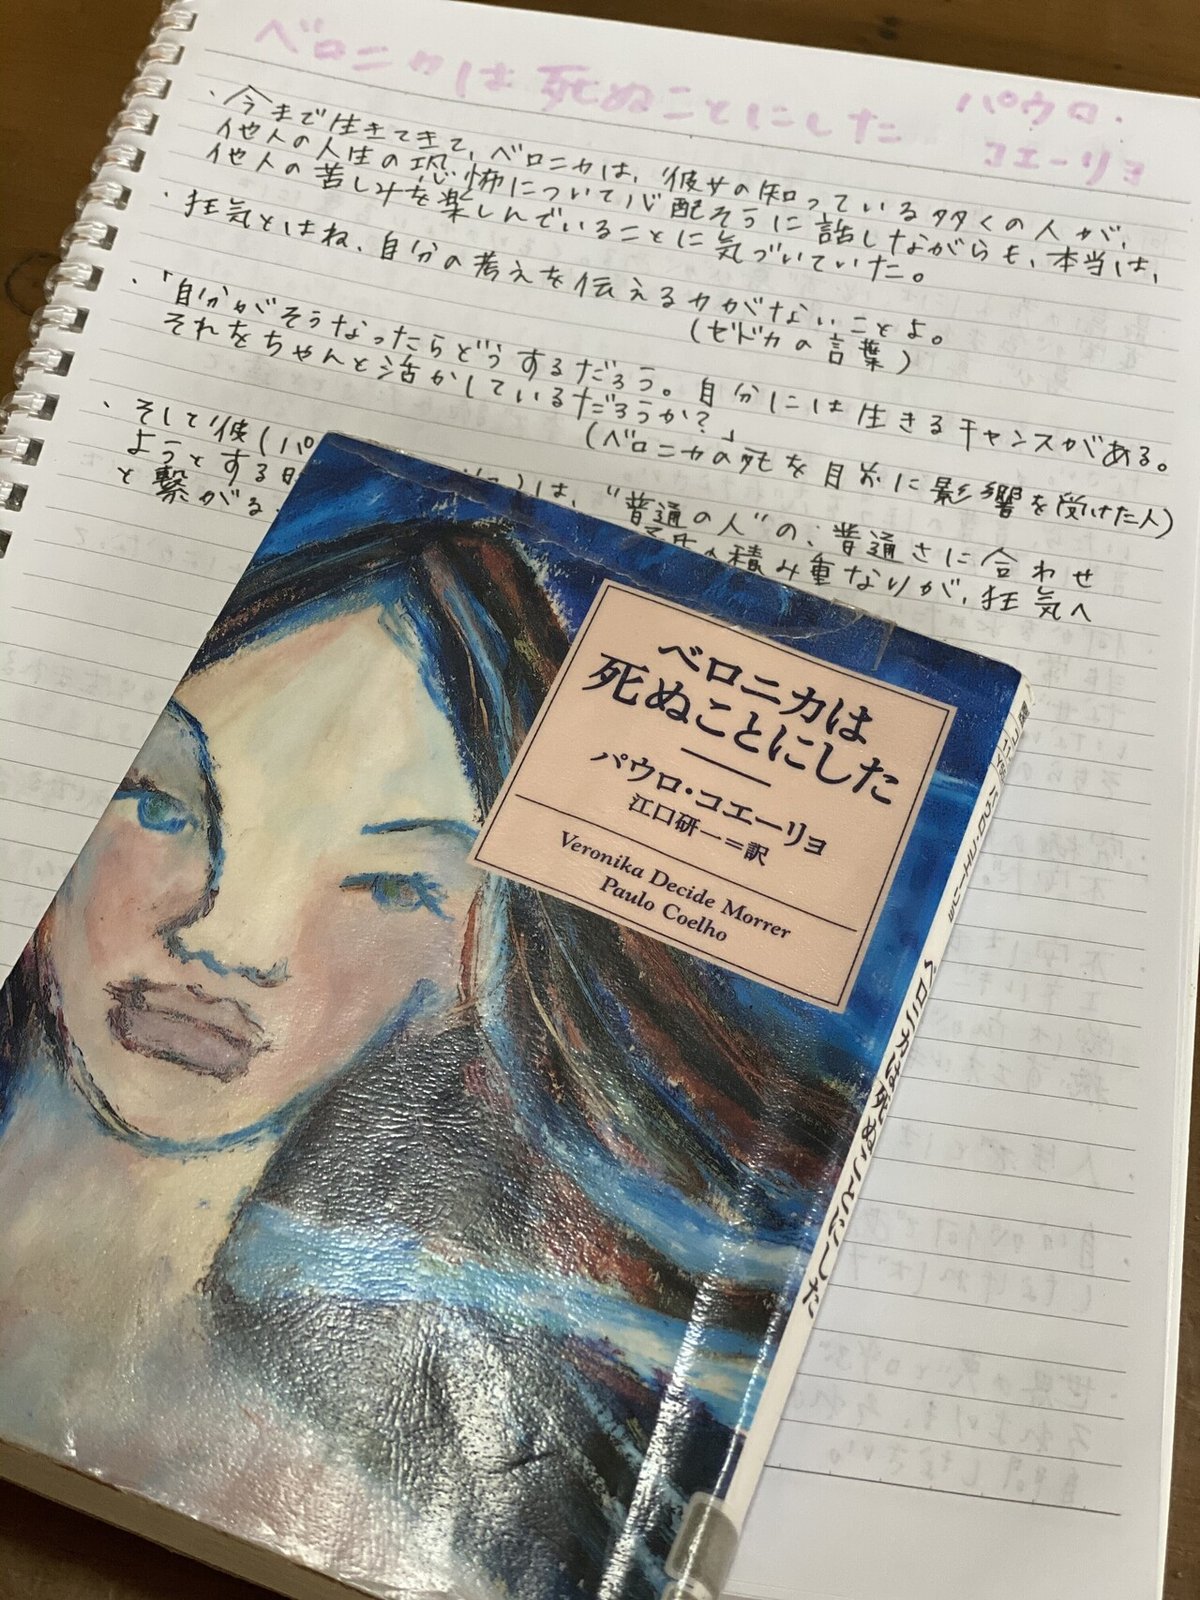 ベロニカは死ぬことにした パウロ・
コエーリョ
・今まで生きてきて、ベロニカは、彼女の知っている多くの人が、
他人の人生の恐怖について心配そうに話しながらも、本当は、
他人の苦しみを楽しんでいることに気づいていた。
・狂気とはね、自分の考えを伝える力がないことよ。
(ゼドカの言葉)
・「自分がそうなったらどうするだろう。自分には生きるチャンスがある。
それをちゃんと活かしているだろうか?」
(ベロニカの死を目前に影響を受けた人)
・そして彼(パ
)は、"普通の人"の、普通さに合わせ
ようとする
の積み重なりが、狂気へ
と繋がる
ベロニカは
死ぬことにした
パウロ・コエーリョ
江口研一=訳
Veronika Decide Morrer
Paulo Coelho
ベロニカは死ぬことにした